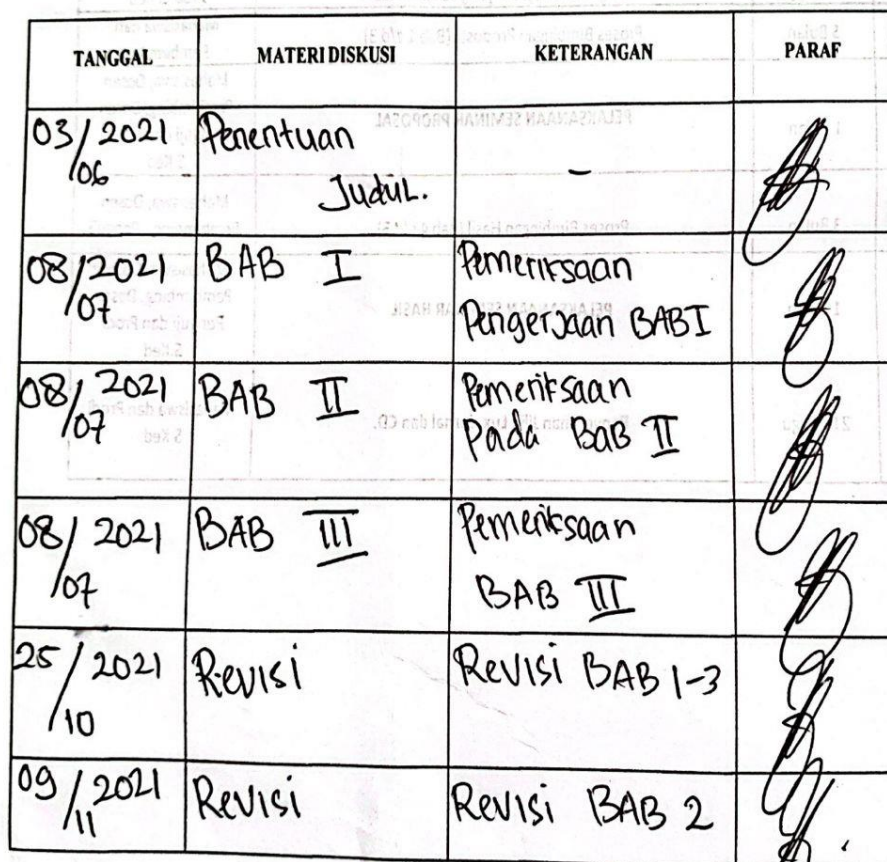 TANGGAL MATERI DISKUSI KETERANGAN PARAF
03/06 2021 Penentuan
Judul. -
08/07 2021 BAB I Pemeriksaan
Pengerjaan BAB I
08/07 2021 BAB II Pemeriksaan
Pada BAB II
08/07 2021 BAB III Pemeriksaan
BAB III
25/10 2021 Revisi Revisi BAB 1-3
09/11 2021 Revisi Revisi BAB 2